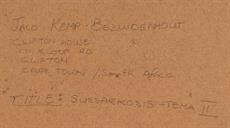 JACO KEMP-BEZUIDENHOUT
CLIFTON HOUSE
KLOOF RD
CLIFTON
CAPE TOWN / SOUTH AFRICA
TITLE: SUSSARKOSIS - TEMA III